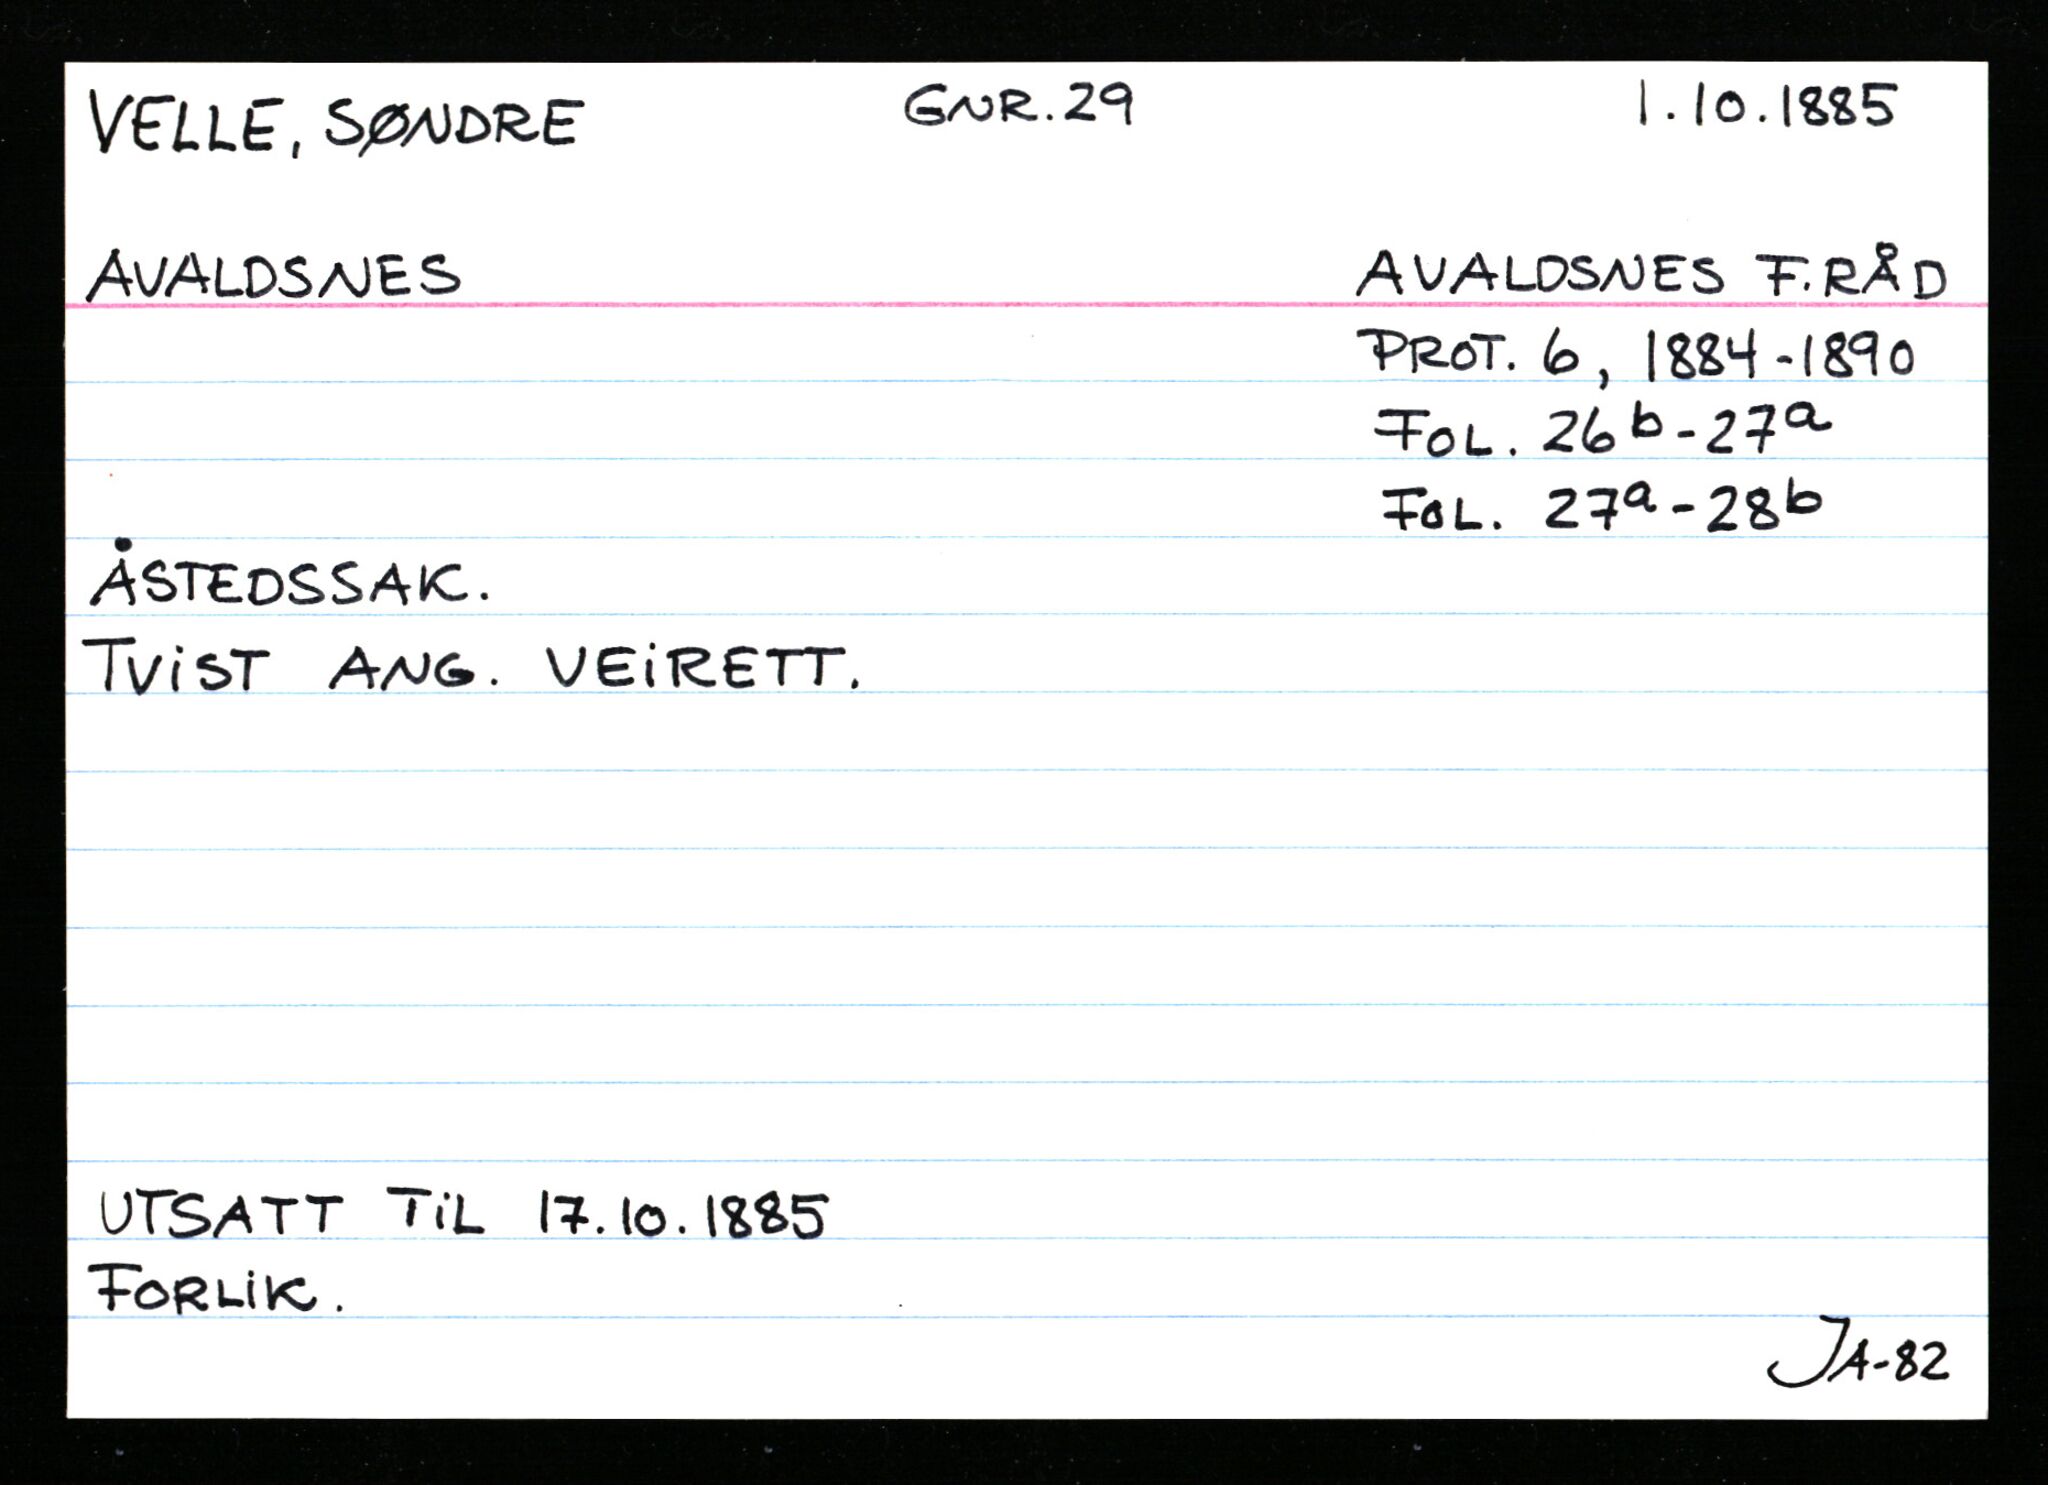 VELLE, SØNDRE GNR. 29 1.10.1885
AVALDSNES AVALDSNES F.RÅD
PROT. 6, 1884-1890
FOL. 26b-27a
FOL. 27a-28b
ÅSTEDSSAK.
TViST ANG. VEiRETT.
UTSATT TiL 17.10.1885
FORLiK.
JA-82